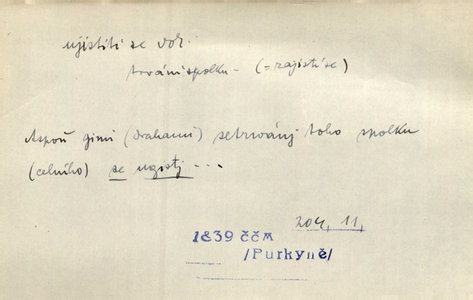 ujistiti se
trvání spolku – (= zajistí se)
Aspoň gimi (drahami) setrwánj toho spolku
(celního) se ugistj ...
204, 11,
1839 ČČM
/Purkyně/